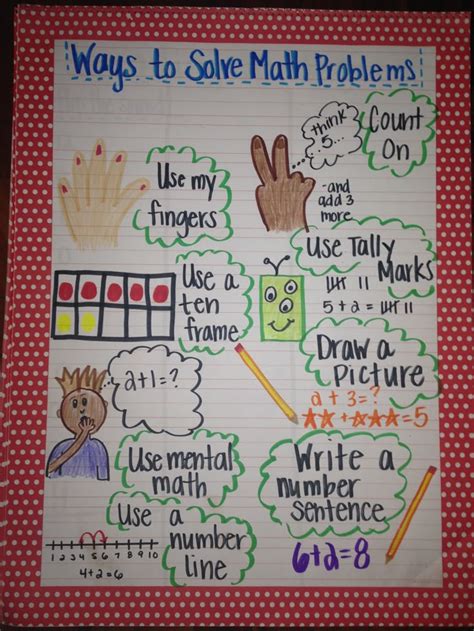 Ways to Solve Math Problems
Use my
fingers
think
5...
Count
On
-and
add 3
more
Use a
ten
frame
Use Tally
Marks
5+2=
2+1=?
Draw a
Picture
2+3=?
+ =5
Use mental
math
Write a
number
sentence
6+2=8
Use a
number
line
1 2 3 4 5 6 7 8 9 10
4+2=6